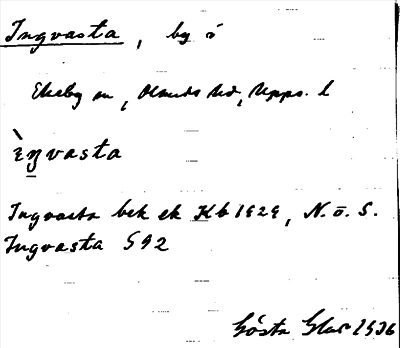 Ingvasta, by i
Ekeby sn, Olands hd, Upps. l
ìŋvasta
Ingvasta bek ek Kb 1929, N. o. S.
Ingvasta 592
Gösta 1936